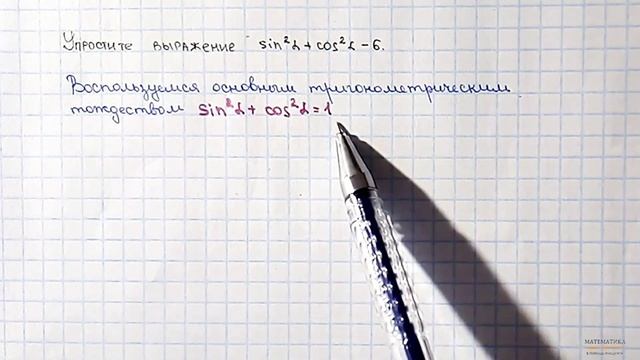 Упростите выражение sin²α + cos²α - 6.
Воспользуемся основным тригонометрическим
тождеством sin²α + cos²α = 1
МАТЕМАТИКА